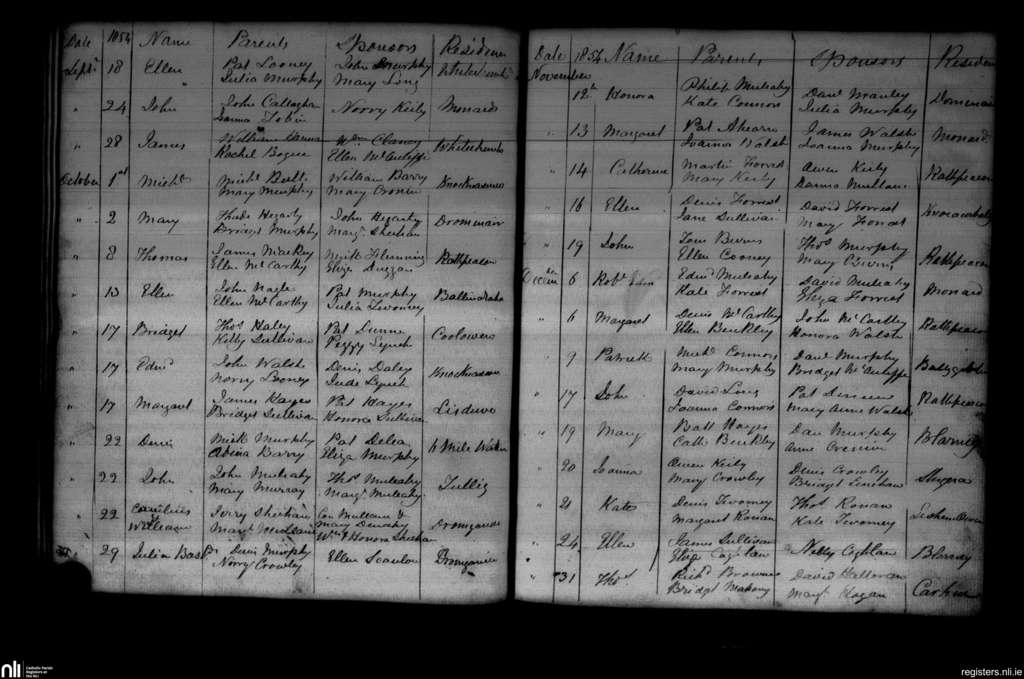 Date 1854 Name Parents Sponsors Residence
Septr 18 Ellen Pat Looney John Murphy
Julia Murphy Mary Long
" 24 John John Callaghan Norry Keily Monard
Tobin
" 28 James William Wm Clancy Whitechurch
Rachel Bogue Ellen McAuliffe
October 1st Michl Michl William Barry
Mary Murphy Mary Cronin
" 2 Mary Thade Hegarty John Hegarty Dromnan
Bridget Murphy Margt Sheehan
" 8 Thomas James Mackey Mick Flemming Rathpeacon
Ellen McCarthy Eliza Duggan
" 13 Ellen John Nagle Pat Murphy
Ellen McCarthy Julia Twomey
" 17 Bridget Thos Haley Pat Dunne Coolowen
Kitty Sullivan Peggy Lynch
" 17 Edwd John Walsh Denis Daley
Norry Looney Jude Lynch
" 17 Margaret James Hayes Pat Hayes
Bridget Sullivan Honora Sullivan
" 22 Denis Mick Murphy Pat Delea
Abina Barry Eliza Murphy
" 22 John John Mulcahy Thos Mulcahy
Mary Murray Margt Mulcahy
" 22 Cornelius & Jerry Sheehan Con Mullane &
William Mary
Wm & Honora Sheehan
" 29 Julia Denis Murphy Ellen Scanlon
Norry Crowley
Date 1854 Name Parents Sponsors Residen
November
12th Honora Philip Mulcahy Danl
Kate Connors Julia Murphy
" 13 Margaret Pat Ahearn James Walsh Monard
Joanna Walsh Joanna Murphy
" 14 Catherine Martin Forrest Owen Keily Rathpeacon
Mary Keily Mullane
" 16 Ellen Denis Forrest David Forrest
Jane Sullivan Mary Forrest
" 19 John Tom Thos Murphy Rathpeacon
Ellen Cooney Mary
6 Robt Edwd Mulcahy David Mulcahy Monard
Kate Forrest Eliza Forrest
" 6 Margaret Denis McCarthy John McCarthy Rathpeacon
Ellen Buckley Honora Walsh
" 9 Patrick Michl Connors Danl Murphy
Mary Murphy Bridget McAuliffe
" 17 John David Long Pat Rathpeacon
Joanna Connors Mary Anne Walsh
" 19 Mary Batt Hayes Dan Murphy Blarney
Cath Buckley Anne
" 20 Joanna Owen Keily Denis Crowley
Mary Crowley Bridget
" 21 Kate Denis Twomey Thos Ronan
Margaret Ronan Kate Twomey
" 24 Ellen James Sullivan Nelly Coghlan Blarney
Eliza Coghlan
" 31 Thos Richd Browne David Halloran
Bridget Mahony Margt Hogan
nli
Catholic Parish
Registers at
the NLI
registers.nli.ie